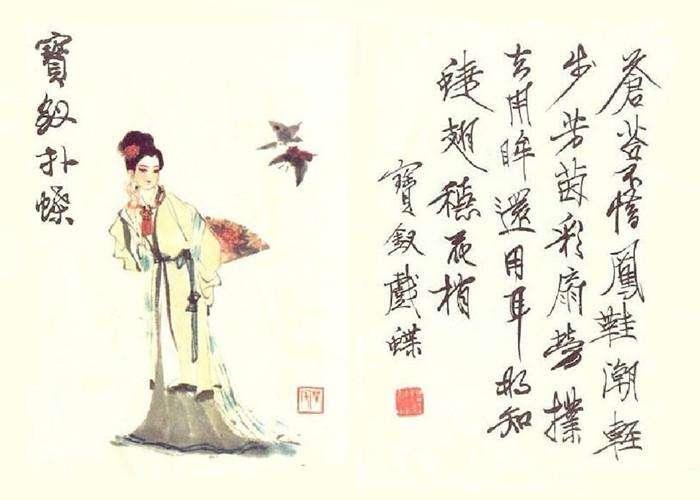 寶釵扑蝶
蒼苔不惜鳳鞋潮輕
步芳茵彩扇勞撲
去用眸還用耳那知
蜨翅穩花梢
寶釵戲蝶